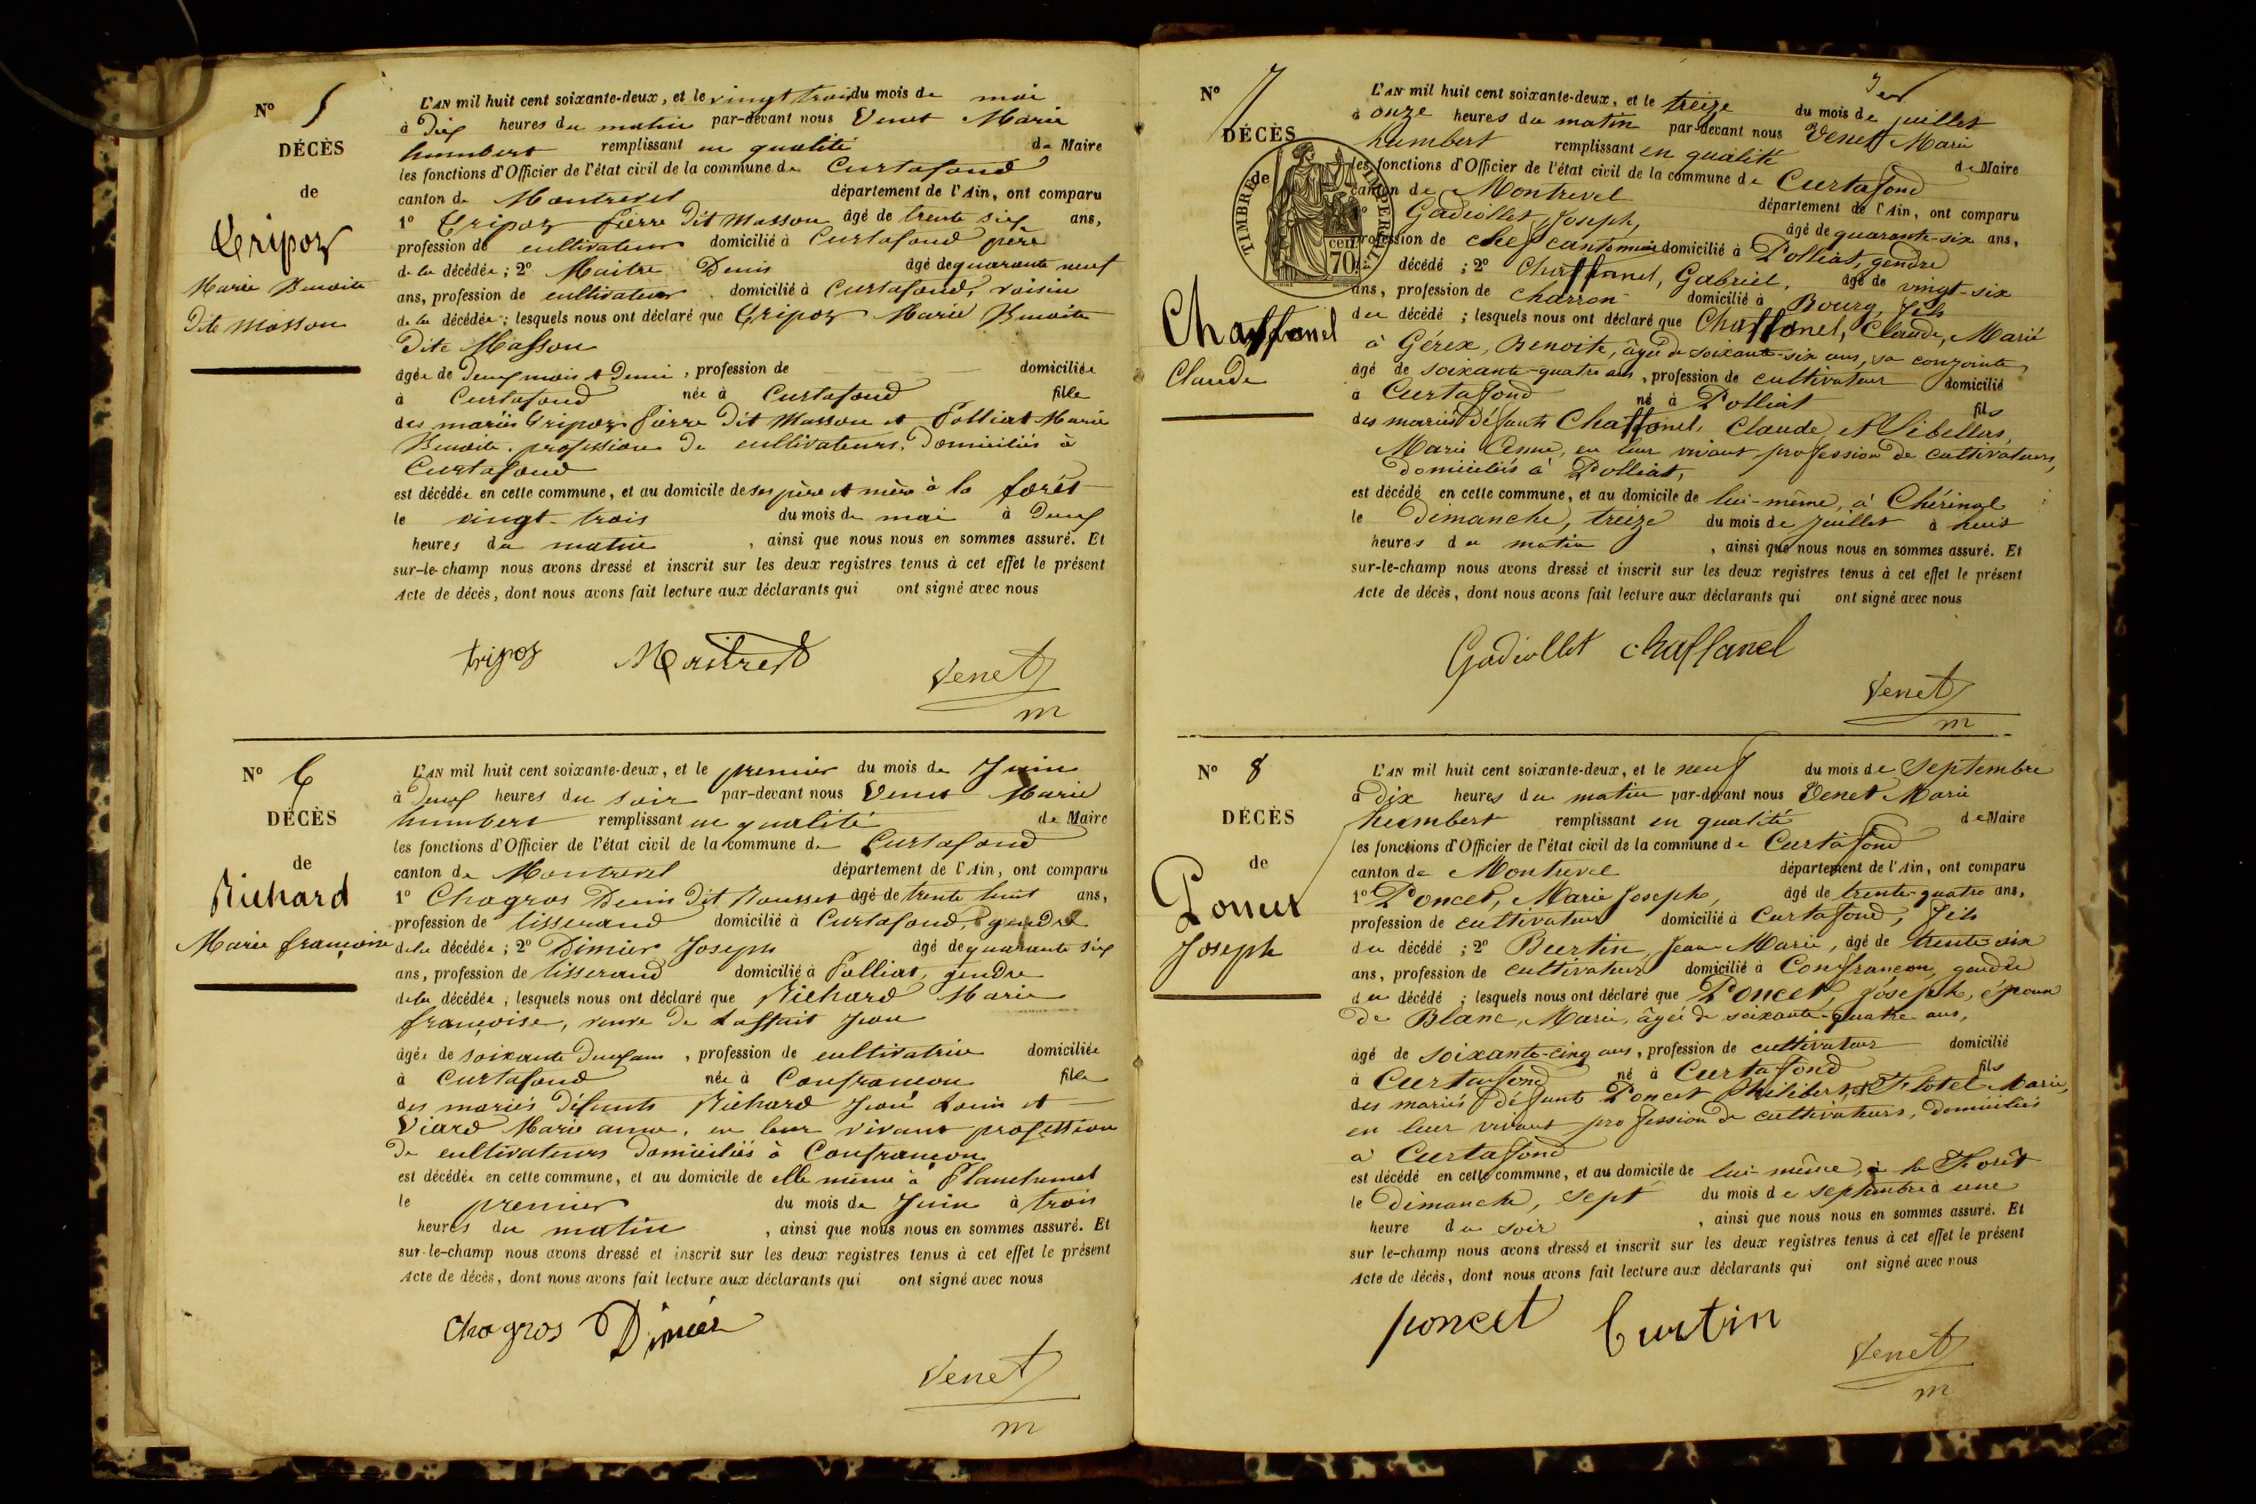 N° 5
DÉCÈS
de
Tripoz
Marie Benoite
dite Masson
L'AN mil huit cent soixante-deux, et le vingt trois du mois de mai
à dix heures du matin par-devant nous Venet Marie
humbert remplissant en qualité de Maire
les fonctions d'Officier de l'état civil de la commune de Curtafond
canton de Montrevel département de l'Ain, ont comparu
1° Tripoz pierre dit Masson âgé de trente six ans,
profession de cultivateur domicilié à Curtafond père
de la décédée ; 2° Maitre Denis âgé de quarante neuf
ans, profession de cultivateur domicilié à Curtafond, voisin
de la décédée ; lesquels nous ont déclaré que Tripoz Marie Benoite
dite Masson
âgée de deux mois et demi , profession de domiciliée
à Curtafond née à Curtafond fille
des mariés Tripoz pierre dit Masson et Polliat Marie
Benoite, profession de cultivateurs, domiciliés à
Curtafond
est décédée en cette commune, et au domicile de ses père et mère à la forêt
le vingt-trois du mois de mai à deux
heures du matin , ainsi que nous nous en sommes assuré. Et
sur-le-champ nous avons dressé et inscrit sur les deux registres tenus à cet effet le présent
Acte de décès, dont nous avons fait lecture aux déclarants qui ont signé avec nous
tripoz Maitre D
Venet
m
N° 6
DÉCÈS
de
Richard
Marie françoise
L'AN mil huit cent soixante-deux, et le premier du mois de Juin
à deux heures du soir par-devant nous Venet Marie
humbert remplissant en qualité de Maire
les fonctions d'Officier de l'état civil de la commune de Curtafond
canton de Montrevel département de l'Ain, ont comparu
1° Chagros Denis dit Rousset âgé de trente huit ans,
profession de tisserand domicilié à Curtafond, gendre
de la décédée ; 2° Dimier Joseph âgé de quarante six
ans, profession de tisserand domicilié à Polliat, gendre
de la décédée ; lesquels nous ont déclaré que Richard Marie
françoise, veuve de
âgée de soixante deux ans , profession de cultivatrice domiciliée
à Curtafond née à Confrançon fille
des mariés défunts Richard et
Viard Marie anne, en leur vivant profession
de cultivateurs domiciliés à Confrançon
est décédée en cette commune, et au domicile de elle même à Planchemel
le premier du mois de Juin à trois
heures du matin , ainsi que nous nous en sommes assuré. Et
sur-le-champ nous avons dressé et inscrit sur les deux registres tenus à cet effet le présent
Acte de décès, dont nous avons fait lecture aux déclarants qui ont signé avec nous
Chagros Dimier
Venet
m
N° 7
DÉCÈS
de
TIMBRE IMPÉRIAL
70
Chaffanel
Claude
L'AN mil huit cent soixante-deux, et le treize du mois de juillet
à onze heures du matin par-devant nous Venet Marie
humbert remplissant en qualité de Maire
les fonctions d'Officier de l'état civil de la commune de Curtafond
canton de Montrevel département de l'Ain, ont comparu
1° Gadiollet, Joseph, âgé de quarante-six ans,
profession de chef cantonnier domicilié à Polliat, gendre
décédé ; 2° Chaffanel, Gabriel, âgé de vingt-six
ans, profession de charron domicilié à Bourg, fils
du décédé ; lesquels nous ont déclaré que Chaffanel, Claude, Marié
à Gérex, Benoite, âgée de soixante-six ans, sa conjointe,
âgé de soixante-quatre ans , profession de cultivateur domicilié
à Curtafond né à Polliat fils
des mariés défunts Chaffanel, Claude et Libellus,
Marie Anne, en leur vivant profession de cultivateurs,
domiciliés à Polliat,
est décédé en cette commune, et au domicile de lui-même, à Chérinal
le dimanche, treize du mois de juillet à huit
heures du matin , ainsi que nous nous en sommes assuré. Et
sur-le-champ nous avons dressé et inscrit sur les deux registres tenus à cet effet le présent
Acte de décès, dont nous avons fait lecture aux déclarants qui ont signé avec nous
Gadiollet chaffanel
Venet
m
N° 8
DÉCÈS
de
Poncet
Joseph
L'AN mil huit cent soixante-deux, et le neuf du mois de Septembre
à dix heures du matin par-devant nous Venet Marie
humbert remplissant en qualité de Maire
les fonctions d'Officier de l'état civil de la commune de Curtafond
canton de Montrevel département de l'Ain, ont comparu
1° Poncet, Marie Joseph, âgé de trente-quatre ans,
profession de cultivateur domicilié à Curtafond, fils
du décédé ; 2° Burtin, Jean Marie, âgé de trente-six
ans, profession de cultivateur domicilié à Confrançon, gendre
du décédé ; lesquels nous ont déclaré que Poncet, Joseph, époux
de Blanc, Marie, âgée de soixante-quatre ans,
âgé de soixante-cinq ans , profession de cultivateur domicilié
à Curtafond né à Curtafond fils
des mariés défunts Poncet Philibert, et Flotel Marie,
en leur vivant profession de cultivateurs, domiciliés
à Curtafond
est décédé en cette commune, et au domicile de lui-même, à la Forêt
le Dimanche, sept du mois de septembre à une
heure du soir , ainsi que nous nous en sommes assuré. Et
sur le-champ nous avons dressé et inscrit sur les deux registres tenus à cet effet le présent
Acte de décès, dont nous avons fait lecture aux déclarants qui ont signé avec nous
poncet burtin
Venet
m